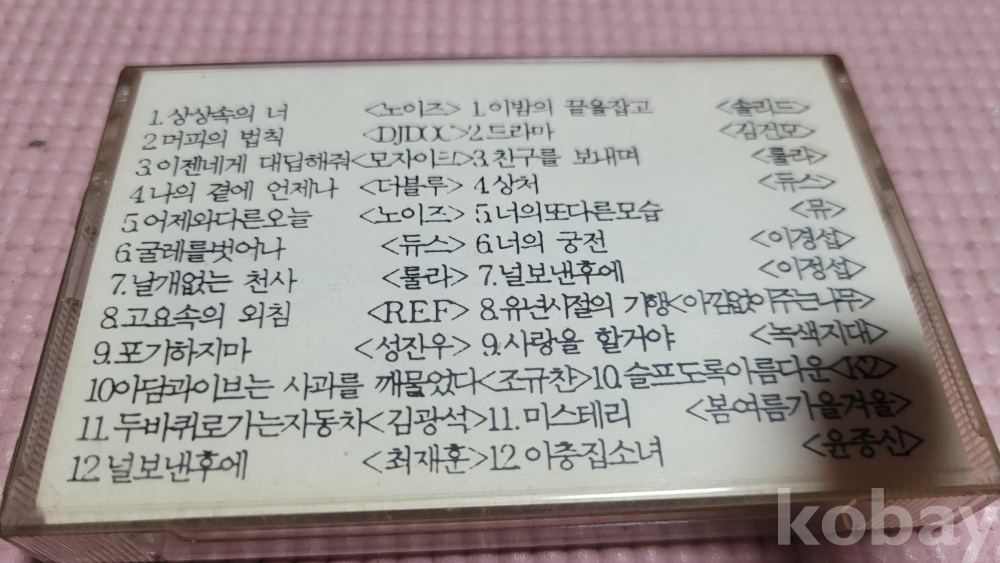 1. 상상속의 너 <노이즈>
2 머피의 법칙 <DJDOC>
3. 이젠네게 대답해줘<모자이크>
4 나의 곁에 언제나 <더블루>
5. 어제와다른오늘 <노이즈>
6. 굴레를벗어나 <듀스>
7. 날개없는 천사 <룰라>
8. 고요속의 외침 <R.E.F>
9. 포기하지마 <성진우>
10아담과이브는 사과를 깨물었다<조규찬>
11. 두바퀴로가는자동차<김광석>
12. 널보낸후에 <최재훈>
1. 이밤의 끝을잡고 <솔리드>
2. 드라마 <김건모>
3. 친구를 보내며 <룰라>
4 상처 <듀스>
5. 너의또다른모습 <뮤>
6. 너의 궁전 <이경섭>
7. 널보낸후에 <이정섭>
8. 유년시절의 기행<아낌없이주는나무>
9. 사랑을 할거야 <녹색지대>
10. 슬프도록아름다운<K2>
11. 미스테리 <봄여름가을겨울>
12. 이층집소녀 <윤종신>
kobay